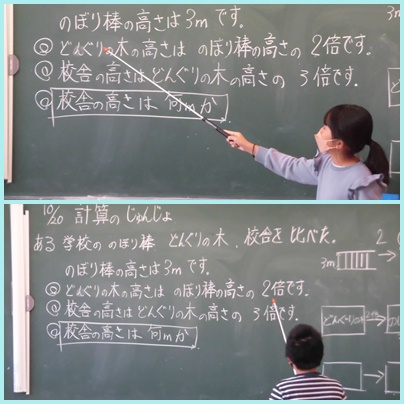 のぼり棒の高さは3mです。
どんぐりの木の高さは のぼり棒の高さの 2倍です。
校舎の高さはどんぐりの木の高さの 3倍です。
校舎の高さは 何mか
10/20 計算のじゅんじょ
ある 学校の のぼり棒 どんぐりの木、校舎を 比べた。
のぼり棒の高さは3mです。
どんぐりの木の高さは のぼり棒の高さの 2倍です。
校舎の高さはどんぐりの木の高さの 3倍です。
校舎の高さは 何mか
3m
どんぐりの木